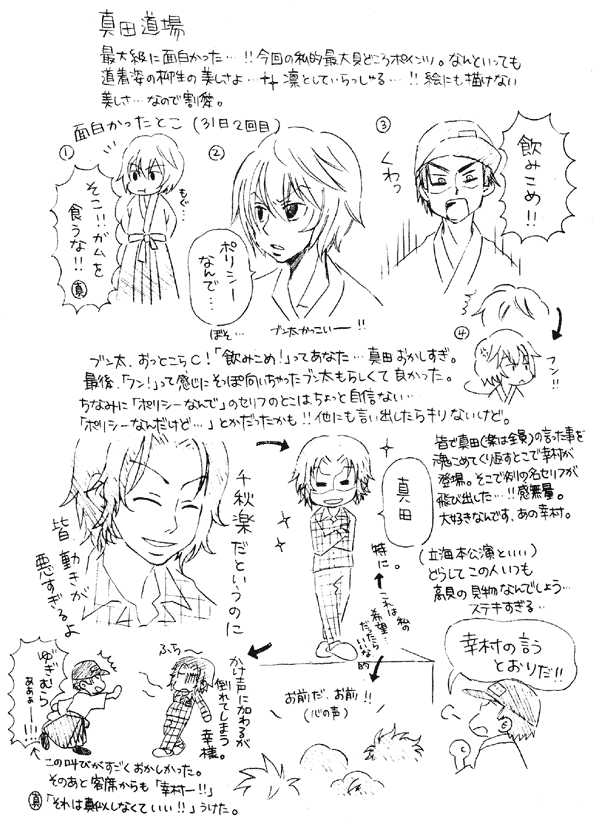 真田道場
最大級に面白かった…!!今回の私的最大見どころポインツ。なんといっても
道着姿の柳生の美しさよ…凛としていらっしゃる…!!絵にも描けない
美しさ…なので割愛。
面白かったとこ(31日2回目)
①
そこ!!ガムを
食うな!!
真
もぐ…
②
ポリシー
なんで…
ぼそ…
ブン太かっこいー!!
③
くわっ
飲みこめ!!
④
フン!!
ブン太、おっとこらC!「飲みこめ!」ってあなた…真田おかしすぎ。
最後、「フン!」って感じにそっぽ向いちゃったブン太もらしくて良かった。
ちなみに「ポリシーなんで」のセリフのとこはちょっと自信ない…
「ポリシーなんだけど…」とかだったかも!!他にも言い出したらキリないけど。
皆で真田(楽は全員)の言った事を
魂こめてくり返すとこで幸村が
登場。そこで例の名セリフが
飛び出した…!!感無量。
大好きなんです、あの幸村。
(立海本公演といい)
どうしてこの人いつも
高見の見物なんでしょう…
ステキすぎる…
千秋楽だというのに
皆動きが
悪すぎるよ
真田
特に。
これは私の
希望…
だったら
いいな
的
お前だ、お前!!
(心の声)
幸村の言う
とおりだ!!
かけ声に加わるが
倒れてしまう
幸様。
ふら〜
ゆぎむら
ああぁー!!!
この叫びがすごくおかしかった。
そのあと客席からも「幸村ー!!」
真「それは真似しなくていい!!」うけた。